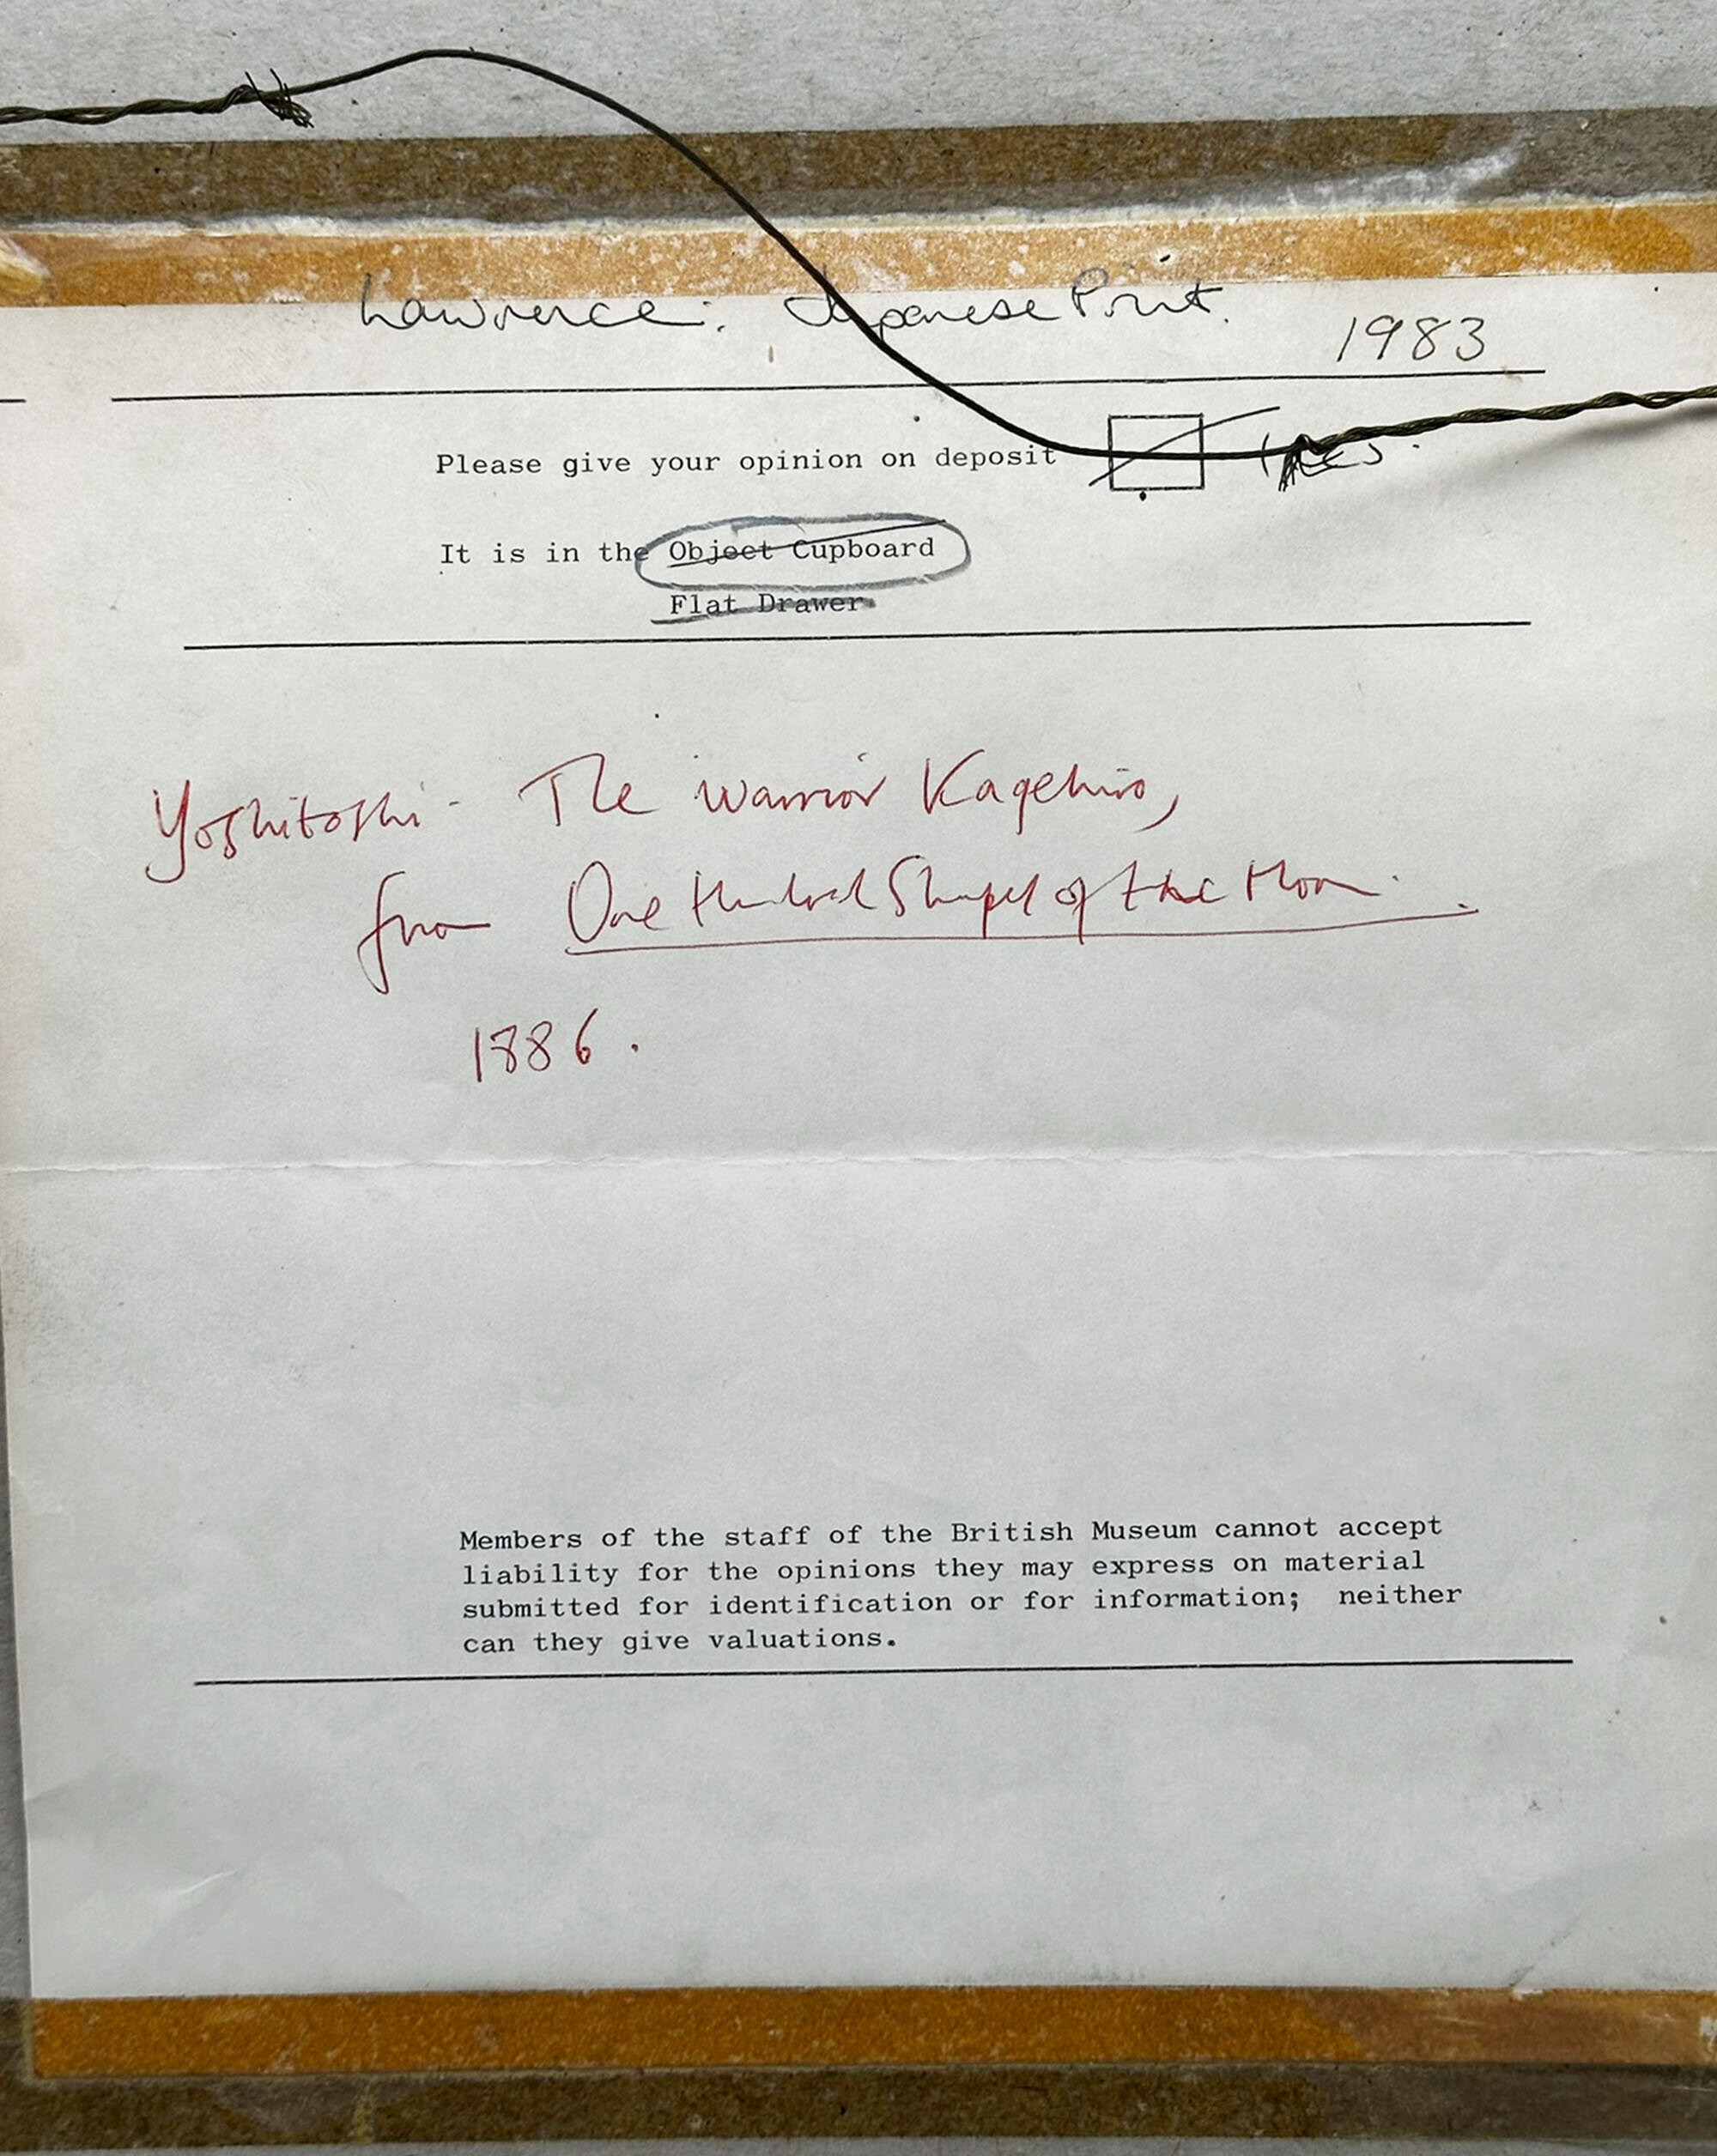 Lawrence: Japanese Print.
1983
Please give your opinion on deposit
It is in the Object Cupboard
Flat Drawer
Yoshitoshi - The warrior Kagehiro,
from One Hundred Shapes of the Moon.
1886.
Members of the staff of the British Museum cannot accept
liability for the opinions they may express on material
submitted for identification or for information; neither
can they give valuations.